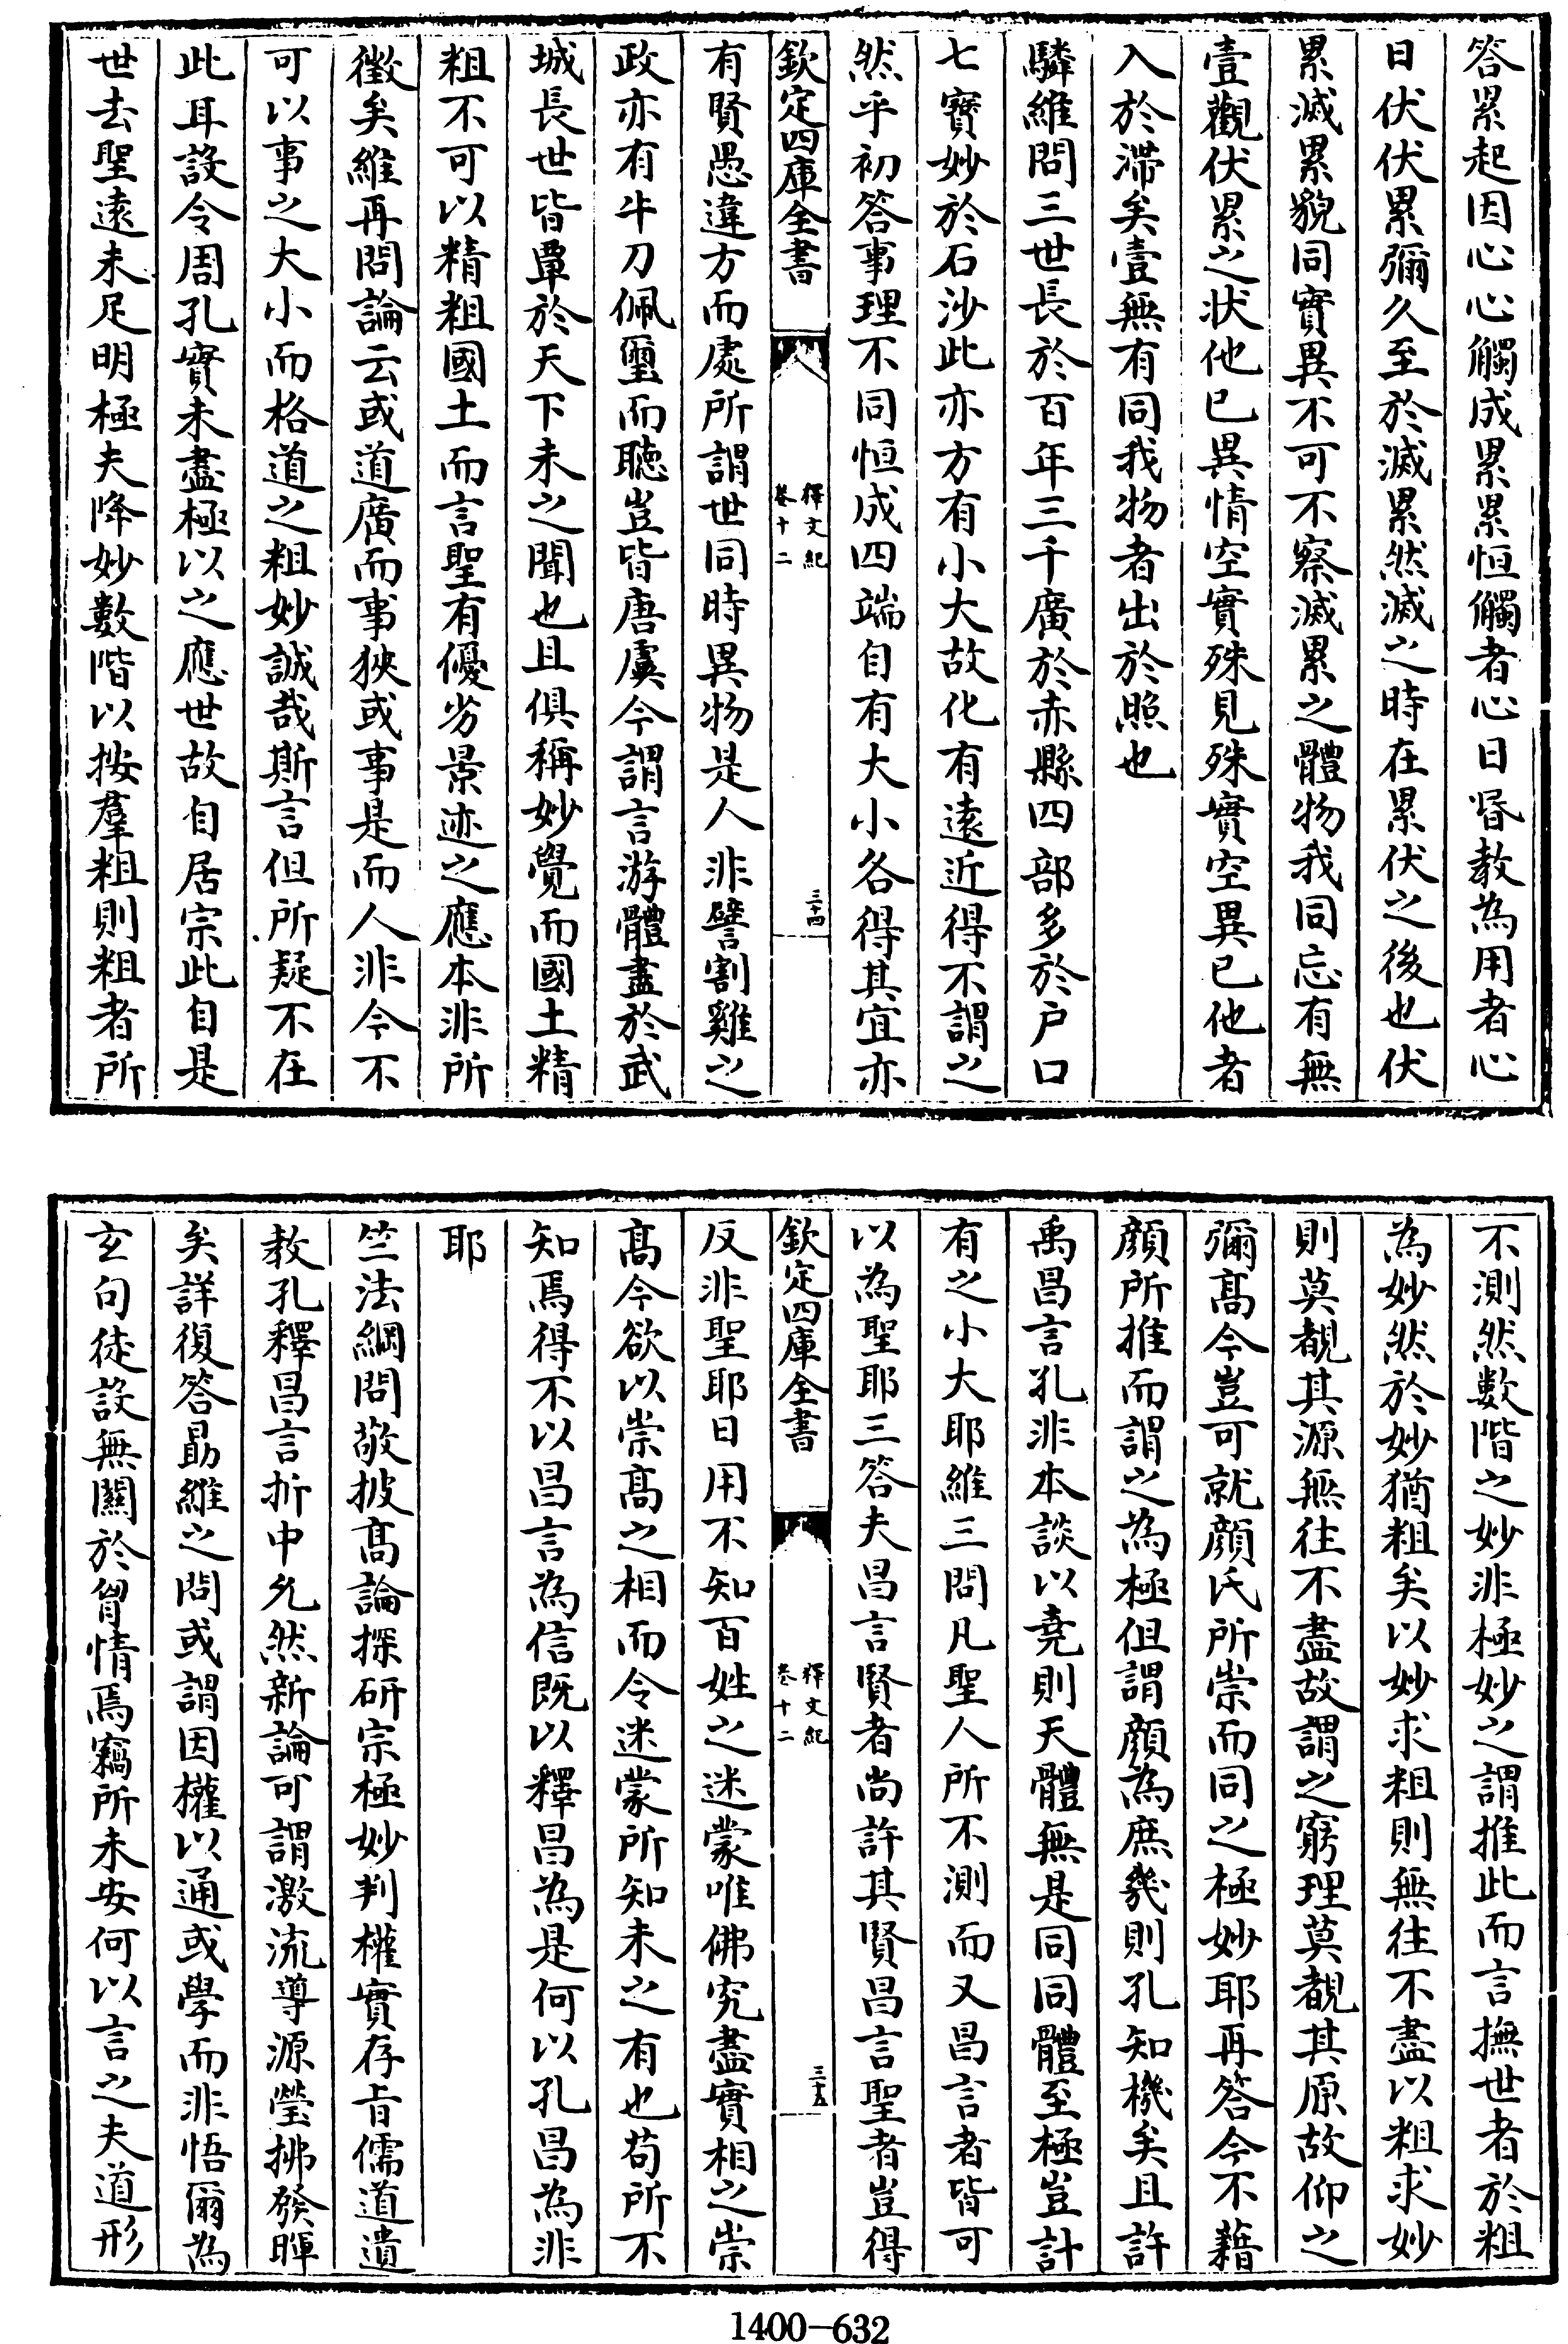 答累起因心心觸成累累恒觸者心日昬教為用者心
日伏伏累彌久至於滅累然滅之時在累伏之後也伏
累滅累貌同實異不可不察滅累之體物我同忘有無
壹觀伏累之狀他已異情空實殊見殊實空異已他者
入於滯矣壹無有同我物者出於照也
驎維問三世長於百年三千廣於赤縣四部多於户口
七寳妙於石沙此亦方有小大故化有遠近得不謂之
然乎初答事理不同恒成四端自有大小各得其宜亦
欽定四庫全書
釋文紀
卷十二
三十四
有賢愚違方而處所謂世同時異物是人非譬割雞之
政亦有牛刀佩璽而聽豈皆唐虞今謂言游體盡於武
城長世皆覃於天下未之聞也且俱稱妙覺而國土精
粗不可以精粗國土而言聖有優劣景迹之應本非所
徵矣維再問論云或道廣而事狹或事是而人非今不
可以事之大小而格道之粗妙誠哉斯言但所疑不在
此耳設令周孔實未盡極以之應世故自居宗此自是
世去聖遠未足明極夫降妙數階以按羣粗則粗者所
不測然數階之妙非極妙之謂推此而言撫世者於粗
為妙然於妙猶粗矣以妙求粗則無往不盡以粗求妙
則莫覩其源無往不盡故謂之窮理莫覩其原故仰之
彌髙今豈可就顔氏所崇而同之極妙耶再答今不藉
顔所推而謂之為極但謂顔為庶㡬則孔知機矣且許
禹昌言孔非本談以堯則天體無是同同體至極豈計
有之小大耶維三問凡聖人所不測而又昌言者皆可
以為聖耶三答夫昌言賢者尚許其賢昌言聖者豈得
欽定四庫全書
釋文紀
卷十二
三十五
反非聖耶日用不知百姓之迷蒙唯佛究盡實相之崇
髙今欲以崇髙之相而令迷蒙所知未之有也苟所不
知焉得不以昌言為信既以釋昌為是何以孔昌為非
耶
竺法綱問敬披髙論探研宗極妙判權實存㫖儒道遺
教孔釋昌言折中允然新論可謂激流導源瑩拂發暉
矣詳復答勗維之問或謂因權以通或學而非悟爾為
玄句徒設無關於胷情焉竊所未安何以言之夫道形
1400-632